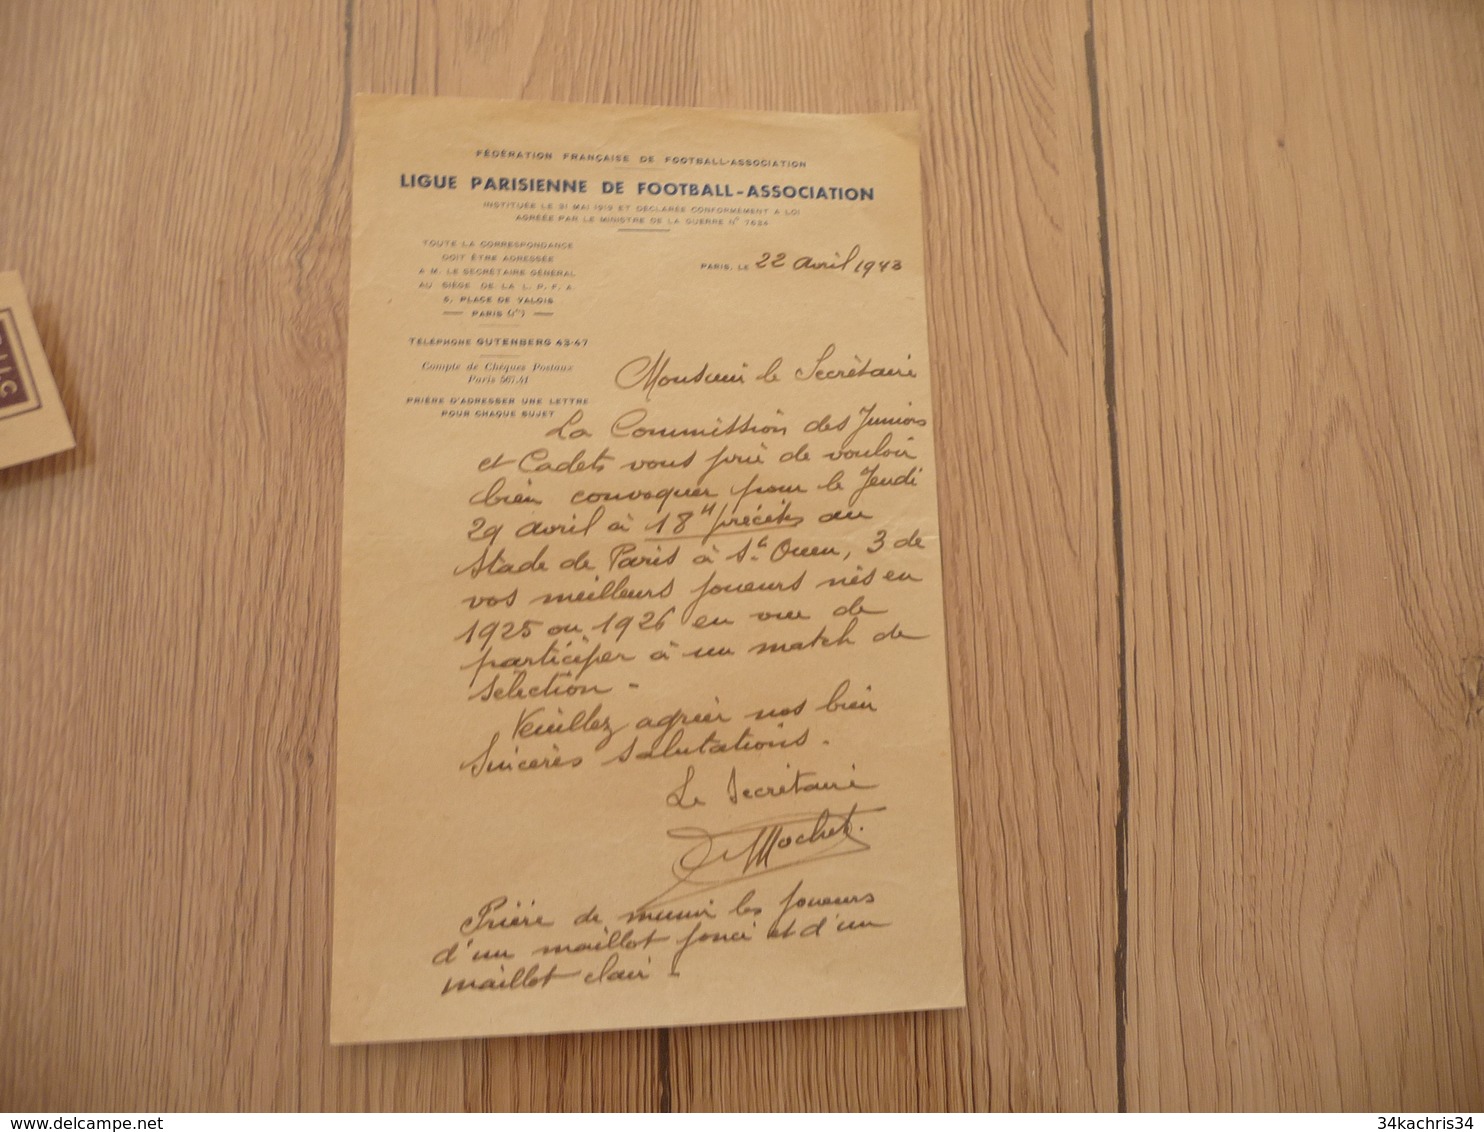 FÉDÉRATION FRANÇAISE DE FOOTBALL-ASSOCIATION
LIGUE PARISIENNE DE FOOTBALL-ASSOCIATION
INSTITUÉE LE 31 MAI 1919 ET DÉCLARÉE CONFORMÉMENT A LOI
AGRÉÉE PAR LE MINISTRE DE LA GUERRE N° 7624
TOUTE LA CORRESPONDANCE
DOIT ÊTRE ADRESSÉE
A M. LE SECRÉTAIRE GÉNÉRAL
AU SIÈGE DE LA L. P. F. A.
5, PLACE DE VALOIS
PARIS (1er)
TÉLÉPHONE GUTENBERG 43-47
Compte de Chèques Postaux
Paris 567.41
PRIÈRE D'ADRESSER UNE LETTRE
POUR CHAQUE SUJET
PARIS, LE 22 avril 1943
Monsieur le Secrétaire
La Commission des Juniors
et Cadets vous prie de vouloir
bien convoquer pour le Jeudi
29 avril à 18H précises au
Stade de Paris à St Ouen, 3 de
vos meilleurs joueurs nés en
1925 ou 1926 en vue de
participer à un match de
sélection -
Veuillez agréer nos bien
sincères salutations.
Le Secrétaire
Mochet.
Prière de munir les joueurs
d'un maillot foncé et d'un
maillot clair -
34kachris34